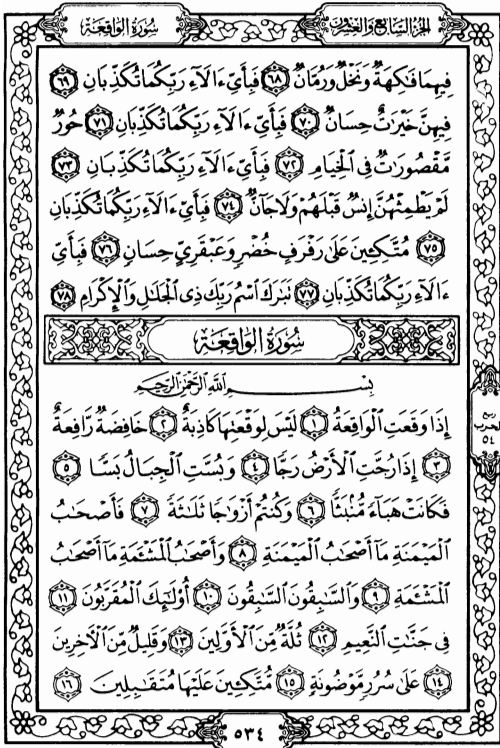 سُورَةُ الوَاقِعَةِ
الجُزْءُ السَّابِعُ وَالعِشْرُونَ
فِيهِمَا فَٰكِهَةٌ وَنَخْلٌ وَرُمَّانٌ ٦٨ فَبِأَيِّ ءَالَآءِ رَبِّكُمَا تُكَذِّبَانِ ٦٩
فِيهِنَّ خَيْرَٰتٌ حِسَانٌ ٧٠ فَبِأَيِّ ءَالَآءِ رَبِّكُمَا تُكَذِّبَانِ ٧١ حُورٌ
مَّقْصُورَٰتٌ فِي ٱلْخِيَامِ ٧٢ فَبِأَيِّ ءَالَآءِ رَبِّكُمَا تُكَذِّبَانِ ٧٣
لَمْ يَطْمِثْهُنَّ إِنسٌ قَبْلَهُمْ وَلَا جَآنٌّ ٧٤ فَبِأَيِّ ءَالَآءِ رَبِّكُمَا تُكَذِّبَانِ
٧٥ مُتَّكِـِٔينَ عَلَىٰ رَفْرَفٍ خُضْرٍ وَعَبْقَرِيٍّ حِسَانٍ ٧٦ فَبِأَيِّ
ءَالَآءِ رَبِّكُمَا تُكَذِّبَانِ ٧٧ تَبَٰرَكَ ٱسْمُ رَبِّكَ ذِي ٱلْجَلَٰلِ وَٱلْإِكْرَامِ ٧٨
سُورَةُ الوَاقِعَةِ
بِسْمِ ٱللَّهِ ٱلرَّحْمَٰنِ ٱلرَّحِيمِ
إِذَا وَقَعَتِ ٱلْوَاقِعَةُ ١ لَيْسَ لِوَقْعَتِهَا كَاذِبَةٌ ٢ خَافِضَةٌ رَّافِعَةٌ
٣ إِذَا رُجَّتِ ٱلْأَرْضُ رَجًّا ٤ وَبُسَّتِ ٱلْجِبَالُ بَسًّا ٥
فَكَانَتْ هَبَآءً مُّنۢبَثًّا ٦ وَكُنتُمْ أَزْوَٰجًا ثَلَٰثَةً ٧ فَأَصْحَٰبُ
ٱلْمَيْمَنَةِ مَآ أَصْحَٰبُ ٱلْمَيْمَنَةِ ٨ وَأَصْحَٰبُ ٱلْمَشْـَٔمَةِ مَآ أَصْحَٰبُ
ٱلْمَشْـَٔمَةِ ٩ وَٱلسَّٰبِقُونَ ٱلسَّٰبِقُونَ ١٠ أُو۟لَٰٓئِكَ ٱلْمُقَرَّبُونَ ١١
فِي جَنَّٰتِ ٱلنَّعِيمِ ١٢ ثُلَّةٌ مِّنَ ٱلْأَوَّلِينَ ١٣ وَقَلِيلٌ مِّنَ ٱلْءَاخِرِينَ
١٤ عَلَىٰ سُرُرٍ مَّوْضُونَةٍ ١٥ مُّتَّكِـِٔينَ عَلَيْهَا مُتَقَٰبِلِينَ ١٦
ربع
الحزب
٥٤
٥٣٤